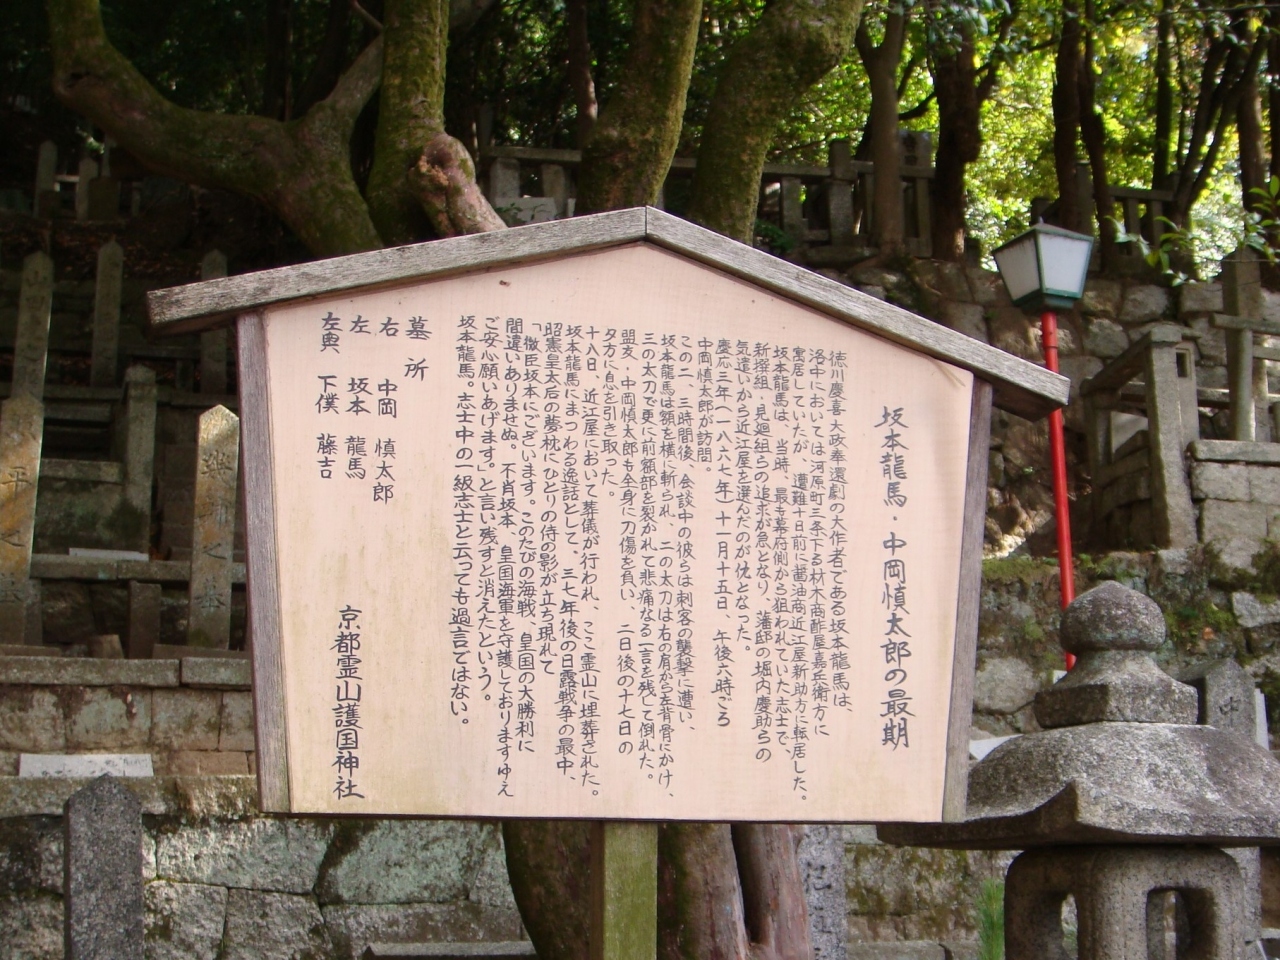 坂本龍馬・中岡慎太郎の最期
徳川慶喜大政奉還劇の大作者である坂本龍馬は、
洛中においては河原町三条下る材木商酢屋嘉兵衛方に
寓居していたが、遭難十日前に醤油商近江屋新助方に転居した。
坂本龍馬は、当時、最も幕府側から狙われていた志士で、
新撰組・見廻組らの追求が急となり、藩邸の堀内慶助らの
気遣いから近江屋を選んだのが仇となった。
慶応三年(一八六七年)十一月十五日、午後六時ごろ
中岡慎太郎が訪問。
この二、三時間後、会談中の彼らは刺客の襲撃に遭い、
坂本龍馬は額を横に斬られ、二の太刀は右の肩から左背骨にかけ、
三の太刀で更に前額部を裂かれて悲痛なる一言を残して倒れた。
盟友・中岡慎太郎も全身に刀傷を負い、二日後の十七日の
夕方に息を引き取った。
十八日、近江屋において葬儀が行われ、ここ霊山に埋葬された。
坂本龍馬にまつわる逸話として、三七年後の日露戦争の最中、
昭憲皇太后の夢枕にひとりの侍の影が立ち現れて
「微臣坂本にございます。このたびの海戦、皇国の大勝利に
間違いありませぬ。不肖坂本、皇国海軍を守護しておりますゆえ
ご安心願いあげます」と言い残すと消えたという。
坂本龍馬。志士中の一級志士と云っても過言ではない。
墓所
右 中岡 慎太郎
左 坂本 龍馬
左奥、下僕 藤吉
京都霊山護国神社